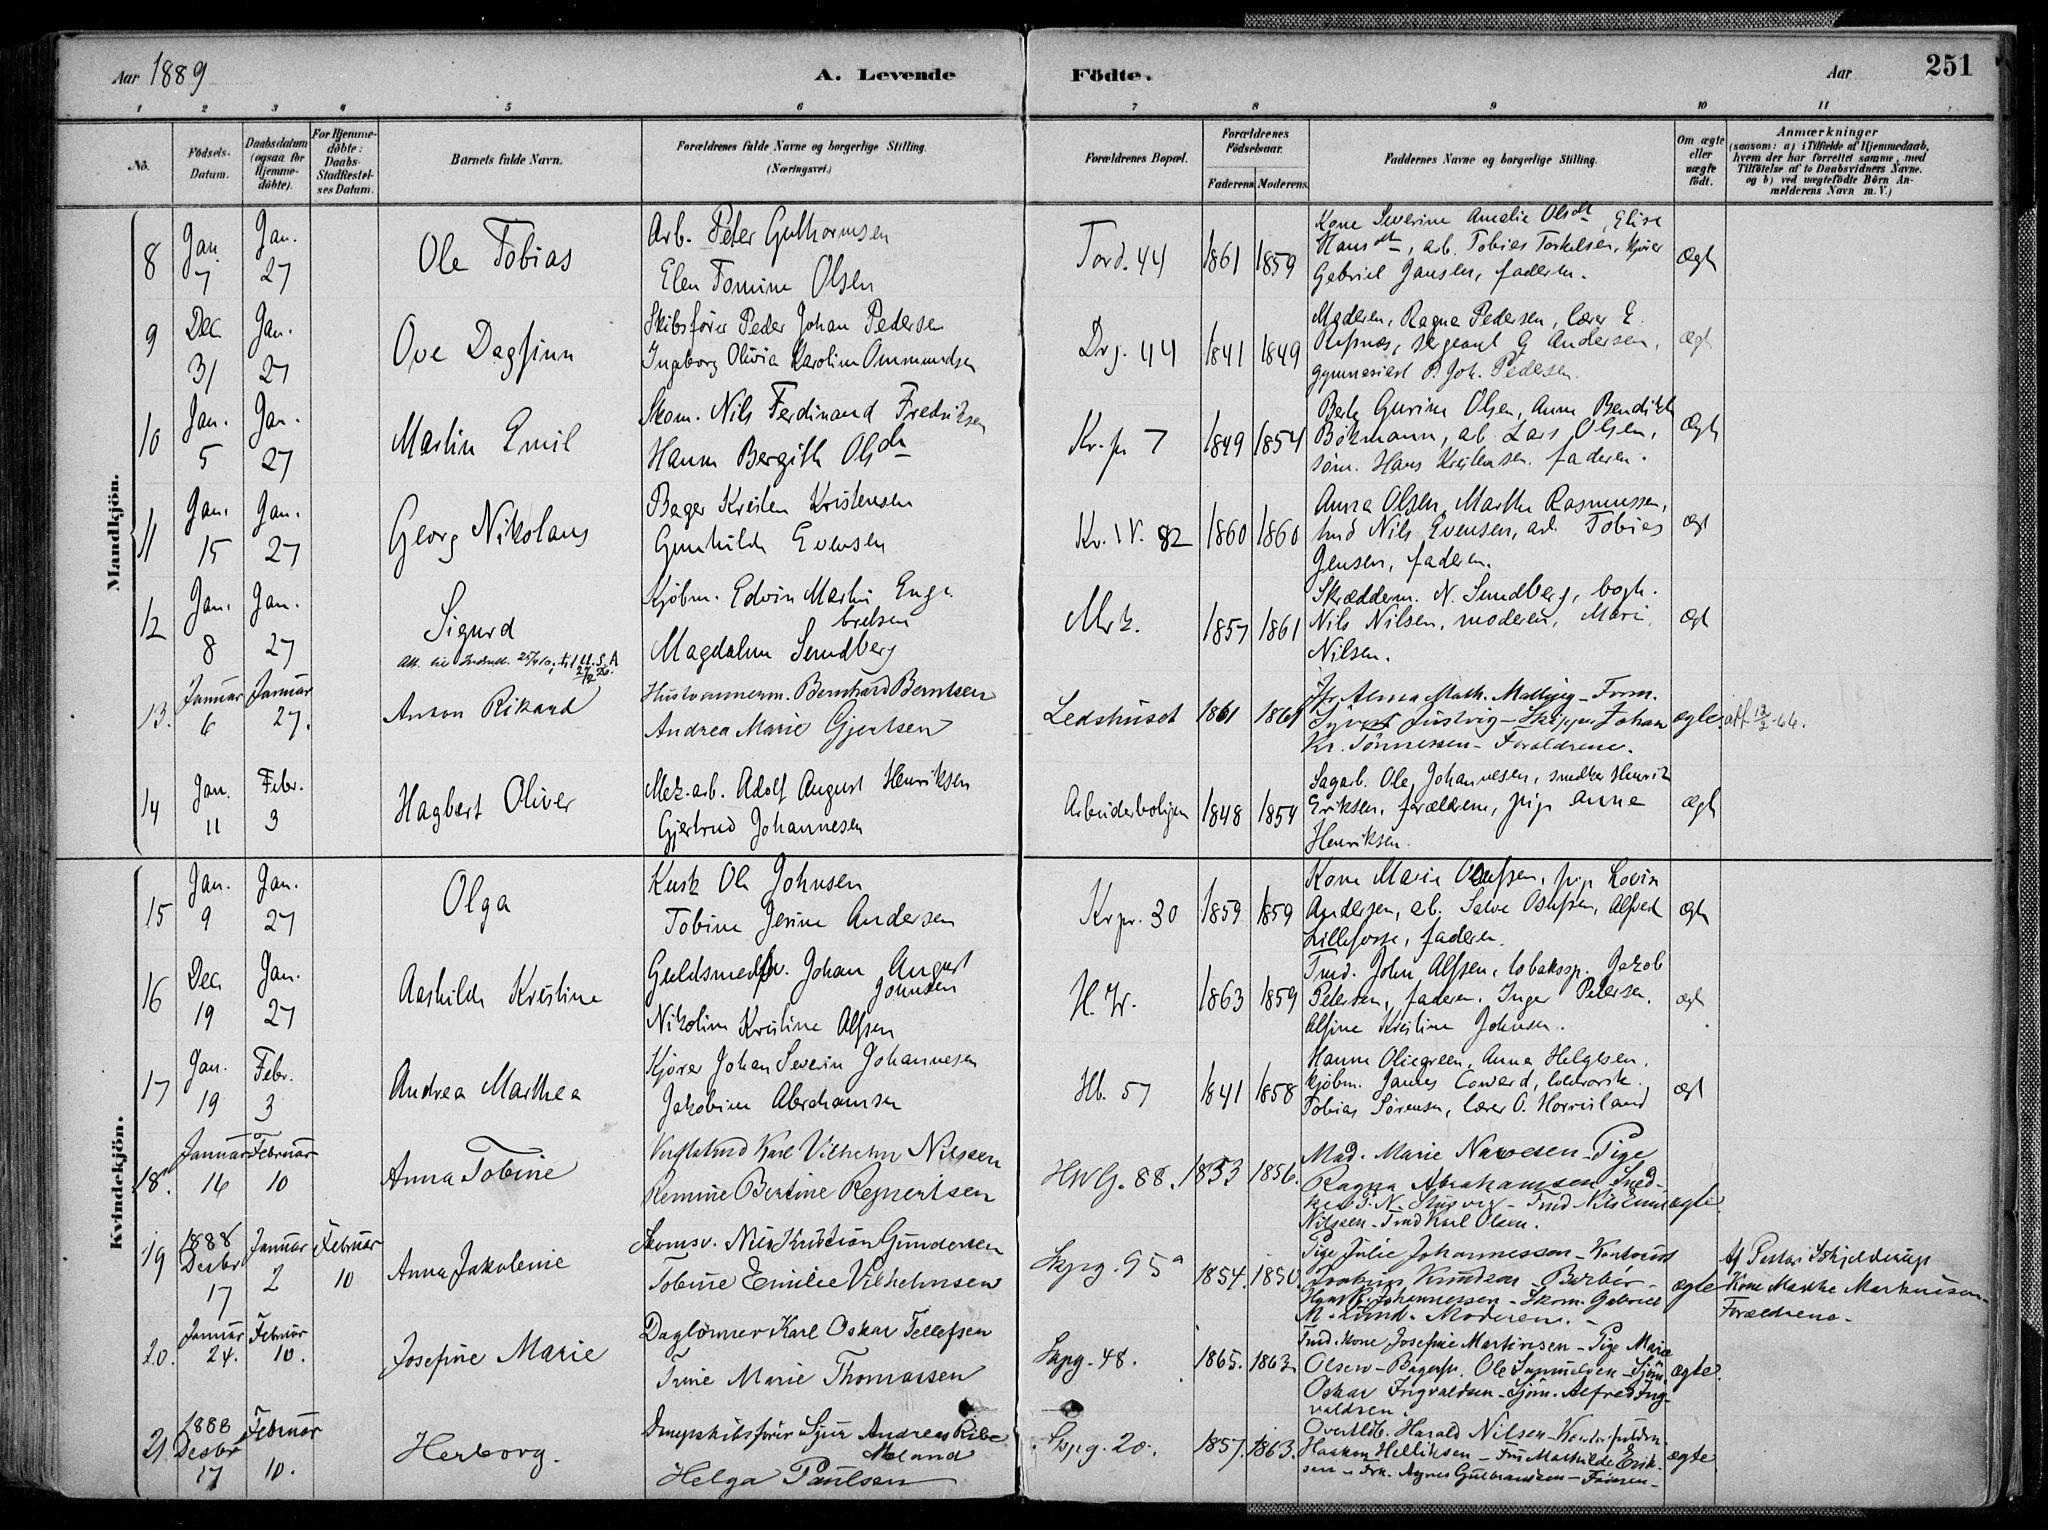 Aar 1889
A. Levende
Födte.
Aar
251
1 2 3 4 5 6 7 8 9 10 11
No.
Födsels-Datum.
Daabsdatum (ogsaa for Hjemmedöbte).
For Hjemmedöbte: Daabs-Stadfæstelses Datum.
Barnets fulde Navn.
Forældrenes fulde Navne og borgerlige Stilling. (Næringsvei.)
Forældrenes Bopæl.
Forældrenes Födselsaar.
Faderens. Moderens.
Faddernes Navne og borgerlige Stilling.
Om ægte eller uægte födt.
Anmærkninger
(saasom: a) i Tilfælde af Hjemmedaab, hvem der har forrettet samme, med Tilföielse af to Daabsvidners Navne. og b) ved uægtefödte Börn Anmelderens Navn m. V.)
Mandkjön.
8 Jan. 7 Jan. 27 Ole Tobias
Arb. Peter Guthormsen
Elen Tomine Olsen
Tord. 44 1861 1859
Kone Severine Amalie Olsdt, Elise
Hansdt, arb. Tobias Torkelsen, kjörer
Gabriel Jansen, faderen.
Ægt
9 Dec 31 Jan. 27 Ove Dagfinn
Skibsförer Peder Johan Pedersen
Ingeborg Olivia Karoline Ommundsen
Drg. 44 1841 1849
Moderen, Ragna Pedersen, lærer E.
Refsnæs, sergeant G Andersen,
gymnasiast P. Joh. Pedersen.
Ægt
10 Jan. 5 Jan. 27 Martin Emil
Skom. Nils Ferdinand Fredriksen
Hanne Bergith Olsdt
Kr. pr 7 1849 1854
Gurine Olsen, Anne
Bökmann, ab. Lars Olsen,
söm. Hans Kristensen. faderen.
Ægt
11 Jan. 15 Jan. 27 Georg Nikolaus
Bager Kristen Kristensen
Gunhilde Evensen
Kr. IV. 82 1860 1860
Anna Olsen, Marthe Rasmussen,
tmd Nils Evensen, arb. Tobias
Jensen, faderen.
Ægt
12 Jan. 8 Jan. 27 Sigurd
Kjöbm. Edvin Martin Enge-
bretsen
Magdalene Sundberg
Mrk. 1857 1861
Skrædderm. N. Sundberg, bogh.
Nils Nilsen, moderen, Marie
Nilsen.
Ægt
13. Januar 6 Januar 27. Anton Rikard
Hustömmerm. Bernhard Berntsen
Andrea Marie Gjertsen
Ledshuset 1861 1861
Kr. Tönnessen – Forældrene.
ægte
14 Jan. 11 Febr. 3 Hagbart Oliver
Mek. arb. Adolf August Henriksen
Gjertrud Johannesen
Arbeiderboligen 1848 1854
Sagarb. Ole Johannesen, snedker Henrik
Eriksen, forældrene, pige Anne
Henriksen.
Ægt
Kvindekjön.
15 Jan. 9 Jan. 27 Olga
Kusk Ole Johnsen
Tobine Jesine Andersen
Kr pr. 30 1859 1859
Kone Marie Olufsen, pige Lovise
Andersen, ab. Salve Osufsen, Alfred
Lillefosse, faderen.
Ægt
16 Dec 19 Jan. 27 Aashilde Kristine
Guldsmedsv. Johan August
Johnsen
Nikoline Kristine Alfsen
1863 1859
Tmd. John Alfsen, tobaksp. Jakob
Petersen, faderen. Inger Petersen,
Alfine Kristine Johnsen.
Ægt
17 Jan. 19 Febr. 3 Andrea Marthea
Kjörer Johan Severin Johannesen
Jakobine Abrahamsen
Hb. 57 1841 1858
Hanne Oliegreen, Anna Helgesen.
kjöbm. James Coward,
Tobias Sörensen, lærer O. Horrisland
Ægt
18. Januar 16 Februar 10 Anna Tobine
Karl Vilhelm Nilssen
Remine Bertine Reinertsen
HWG. 88. 1853 1856.
Mad. Marie Navesen – Pige
Ragna Abrahamsen
Nilssen – Tmd Karl Olsen.
ægte
19 1888 Desbr 17 Januar 2 Februar 10 Anna Jakobine
Skomsv. Nils Kristian Gundersen
Tobine Emilie Vilhelmsen
Skpg. 95a 1854. 1850.
Pige Julie Johannesson
Knudson – Barber
Hans R. Johannessen – Skom. Gabriel
M. Lund – Moderen.
ægte
Af Pastor Schjelderup
Kone Marthe Markussen
Forældrene.
20. Januar 24. Februar 10. Josefine Marie
Daglönner Karl Oskar Tellefsen
Trine Marie Thomassen
Skpg. 48. 1865. 1863.
Tmd. kone Josefine Martinsen – Pige Marie
Olsen – Bagersv. Ole Samuelsen – Sjöm.
Oskar Ingvaldsen – Sjöm. Alfred Ing-
valdsen.
ægte.
21 1888 Desbr 17 Februar 10. Herborg.
Dampskibsförer Sjur Andreas Ribe
Meland
Helga Paulsen
Skpg. 20. 1857. 1863.
Harald Nilsen
Haakon Helliksen – Fru Mathilde Erik-
sen – Frk. Agnes Gulbrandsen – Faderen
ægte